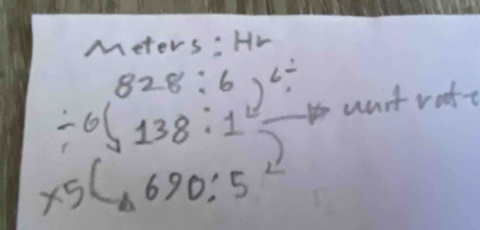 Meters : Hr
828 : 6 6÷
÷6 138 : 1 → unit rate
×5 690 : 5